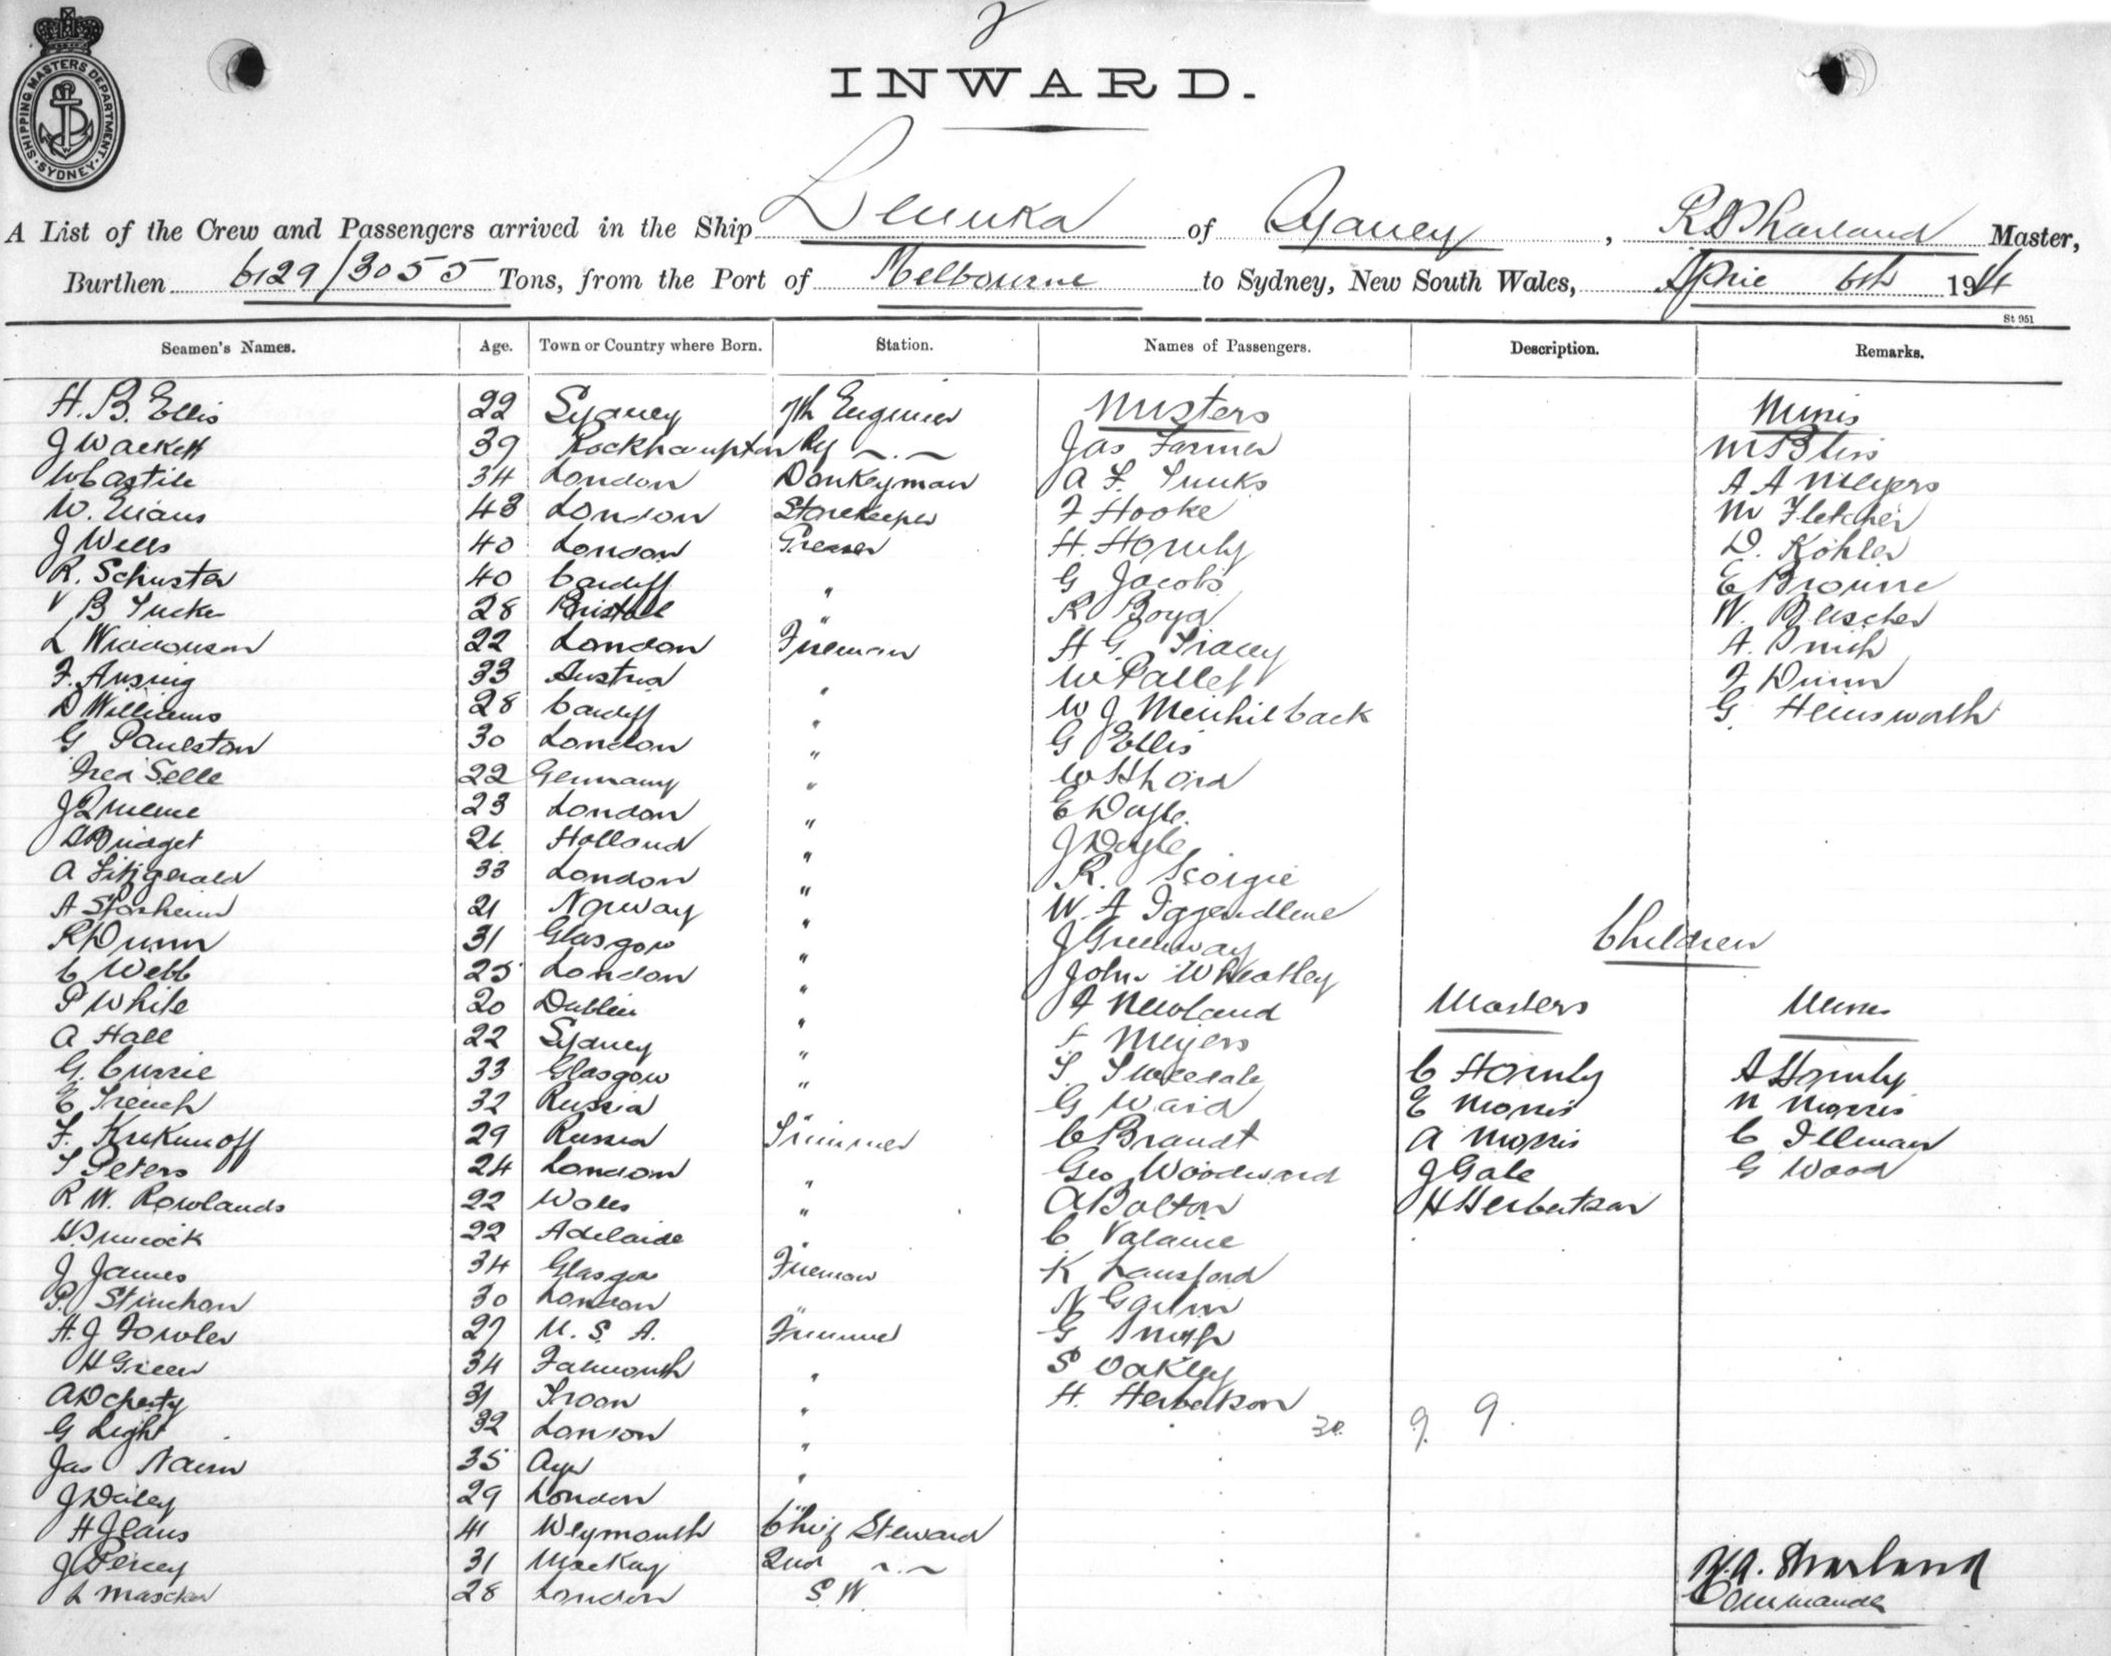 SHIPPING MASTERS DEPARTMENT. SYDNEY.
INWARD.
A List of the Crew and Passengers arrived in the Ship of Sydney, Master,
Burthen 6129/3055 Tons, from the Port of Melbourne to Sydney, New South Wales, April 6th 1914
St 951
Seamen's Names. Age. Town or Country where Born. Station. Names of Passengers. Description. Remarks.
H. B. Ellis 22 Sydney 7th Engineer Misters Misses
J Wackett 39 Rockhampton Ry Jas Farmer M Bliss
W Castile 34 London Donkeyman A F A A Meyers
W. Evans 48 London Storekeeper F Hooke M Fletcher
J Wells 40 London Greaser H. Hornby D. Kohler
R. Schuster 40 Cardiff " G Jacobs E Browne
B Tucker 28 Bristol " R Boyd W.
L Widdowson 22 London Fireman H G Tracey A. Smith
F. 33 Austria " W Pallet F Dunn
D Williams 28 Cardiff " W J G. Hemsworth
G Paulston 30 London " G Ellis
Fred Selle 22 Germany " W H Lord
J 23 London " E Doyle
Bridget 26 Holland " J Doyle
A Fitzgerald 33 London " R. Scorgie
A 21 Norway " W. A Iggendlene
R Dunn 31 Glasgow " J Greenway Children
C Webb 25 London " John Wheatley
P White 20 Dublin " F Newland Masters Misses
A Hall 22 Sydney " F Meyers
G. Currie 33 Glasgow " T Tweedale C Hornby A Hornby
E French 32 Russia G Ward E Morris N Morris
F. Krukunoff 29 Russia Trimmer C Brandt A Morris C Illman
T Peters 24 London " Geo Woodward J Gale G Wood
R W. Rowlands 22 Wales " A Bolton H Herbertson
22 Adelaide " C
J James 34 Glasgow Fireman K Lansford
P. Stinchon 30 London " N
H. J Fowler 27 U. S. A. Trimmer G Smith
H Green 34 Falmouth " S Oakley
A Docherty 31 Troon " H. Herbertson
G Light 32 London " 30 9. 9.
Jas Nairn 35 Ayr "
J Daley 29 London "
H Jeans 41 Weymouth Chief Steward
J Percy 31 Mackay 2nd
L 28 London S. W.
Sharland
Commander